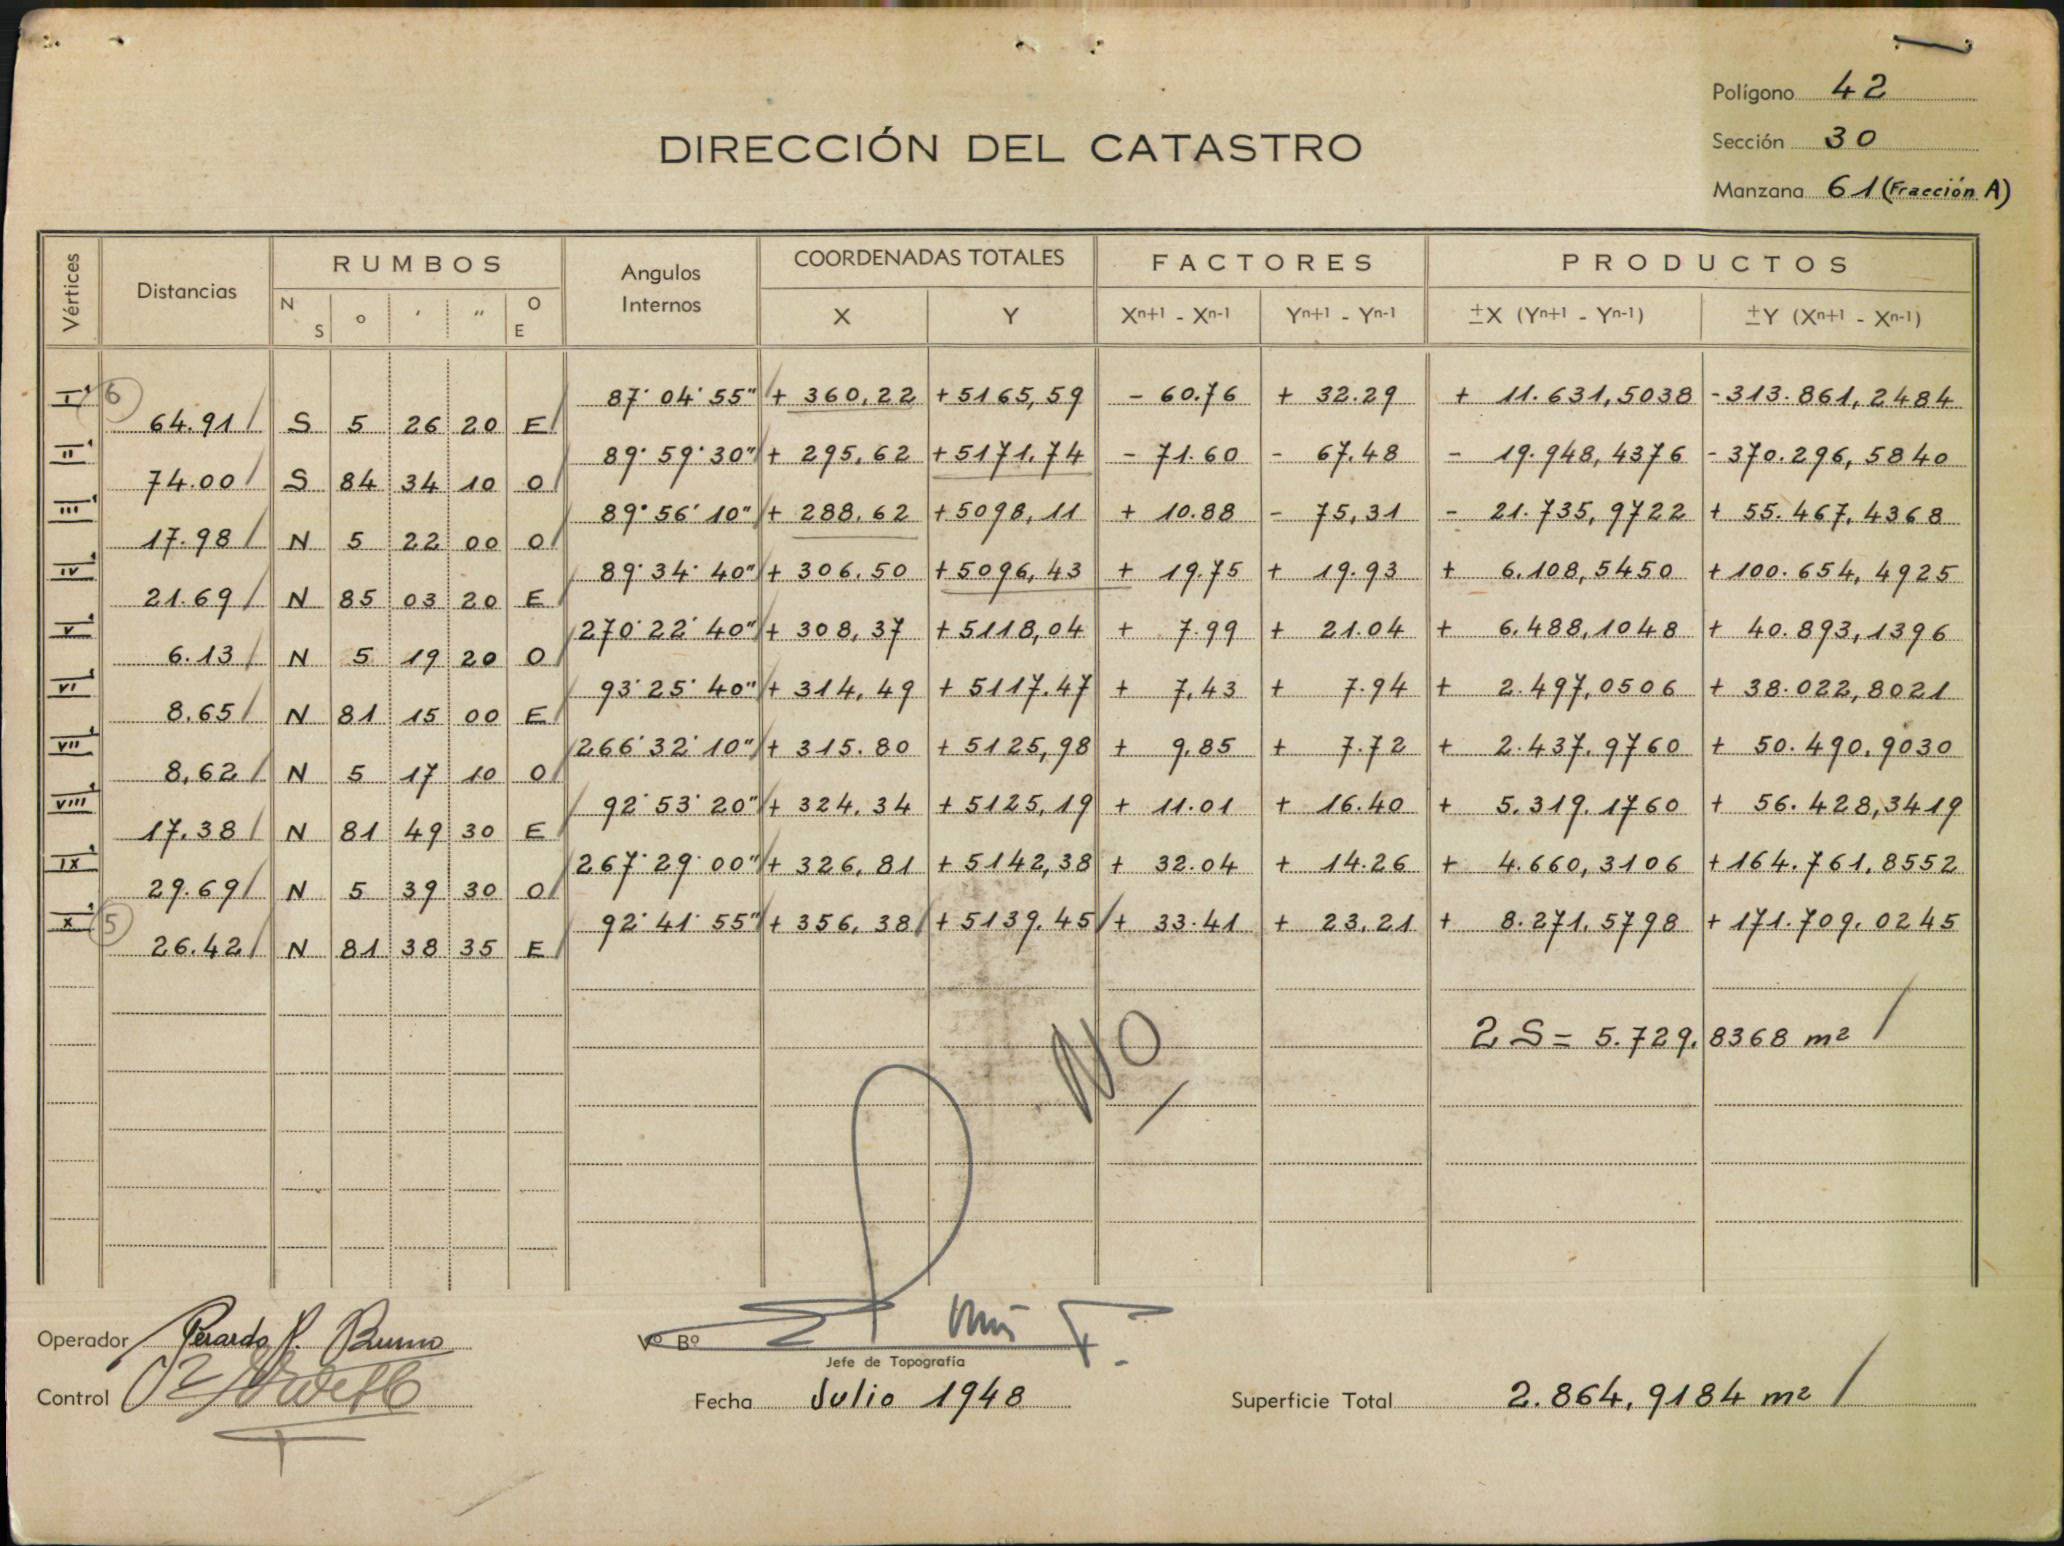 Polígono 42
DIRECCIÓN DEL CATASTRO
Sección 30
Manzana 61 (Fracción A)
Vértices Distancias RUMBOS Angulos Internos COORDENADAS TOTALES FACTORES PRODUCTOS
N S ° ' " O E X Y Xn+1 - Xn-1 Yn+1 - Yn-1 ±X (Yn+1 - Yn-1) ±Y (Xn+1 - Xn-1)
I' 6 87° 04' 55" + 360,22 + 5165,59 - 60.76 + 32.29 + 11.631,5038 - 313.861,2484
64.91 S 5 26 20 E
II' 89° 59' 30" + 295,62 + 5171.74 - 71.60 - 67.48 - 19.948,4376 - 370.296,5840
74.00 S 84 34 10 O
III' 89° 56' 10" + 288.62 + 5098,11 + 10.88 - 75,31 - 21.735,9722 + 55.467,4368
17.98 N 5 22 00 O
IV' 89° 34' 40" + 306.50 + 5096,43 + 19.75 + 19.93 + 6.108,5450 + 100.654,4925
21.69 N 85 03 20 E
V' 270° 22' 40" + 308,37 + 5118,04 + 7.99 + 21.04 + 6.488,1048 + 40.893,1396
6.13 N 5 19 20 O
VI' 93° 25' 40" + 314,49 + 5117.47 + 7,43 + 7.94 + 2.497,0506 + 38.022,8021
8.65 N 81 15 00 E
VII' 266° 32' 10" + 315.80 + 5125,98 + 9,85 + 7.72 + 2.437.9760 + 50.490.9030
8,62 N 5 17 10 O
VIII' 92° 53' 20" + 324.34 + 5125,19 + 11.01 + 16.40 + 5.319.1760 + 56.428,3419
17.38 N 81 49 30 E
IX' 267° 29' 00" + 326,81 + 5142,38 + 32.04 + 14.26 + 4.660,3106 + 164.761.8552
29.69 N 5 39 30 O
X' 5 92° 41' 55" + 356,38 + 5139.45 + 33.41 + 23,21 + 8.271.5798 + 171.709.0245
26.42 N 81 38 35 E
2 S = 5.729.8368 m2
NO
Operador Gerardo R. Bruno
Vº Bº
Jefe de Topografía
Control
Fecha Julio 1948
Superficie Total 2.864,9184 m2